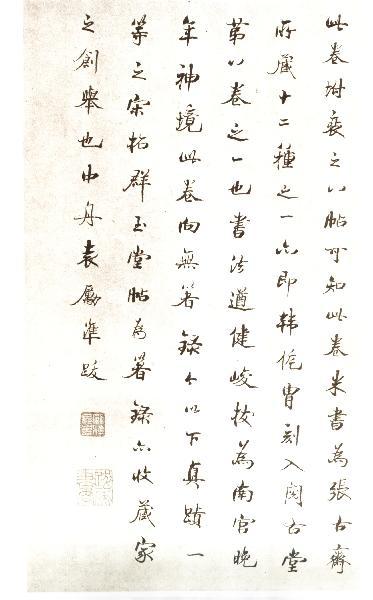 此卷坿裝之八帖可知此卷米書為張古齋
所藏十二種之一亦即韓侂冑刻入閱古堂
第八卷之一也書法遒健峻拔為南宮晚
年神境此卷向無箸錄今以下真蹟一
等之宋拓群玉堂帖為箸錄亦收藏家
之創舉也中舟袁勵準跋